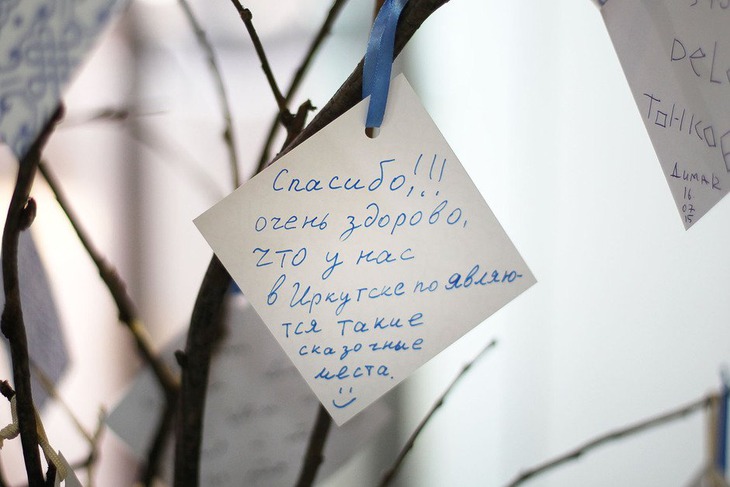 Спасибо,!!!
очень здорово,
что у нас
в Иркутске появляю-
тся такие
сказочные
места.
DeL
Тонко
Димак
16
07
15